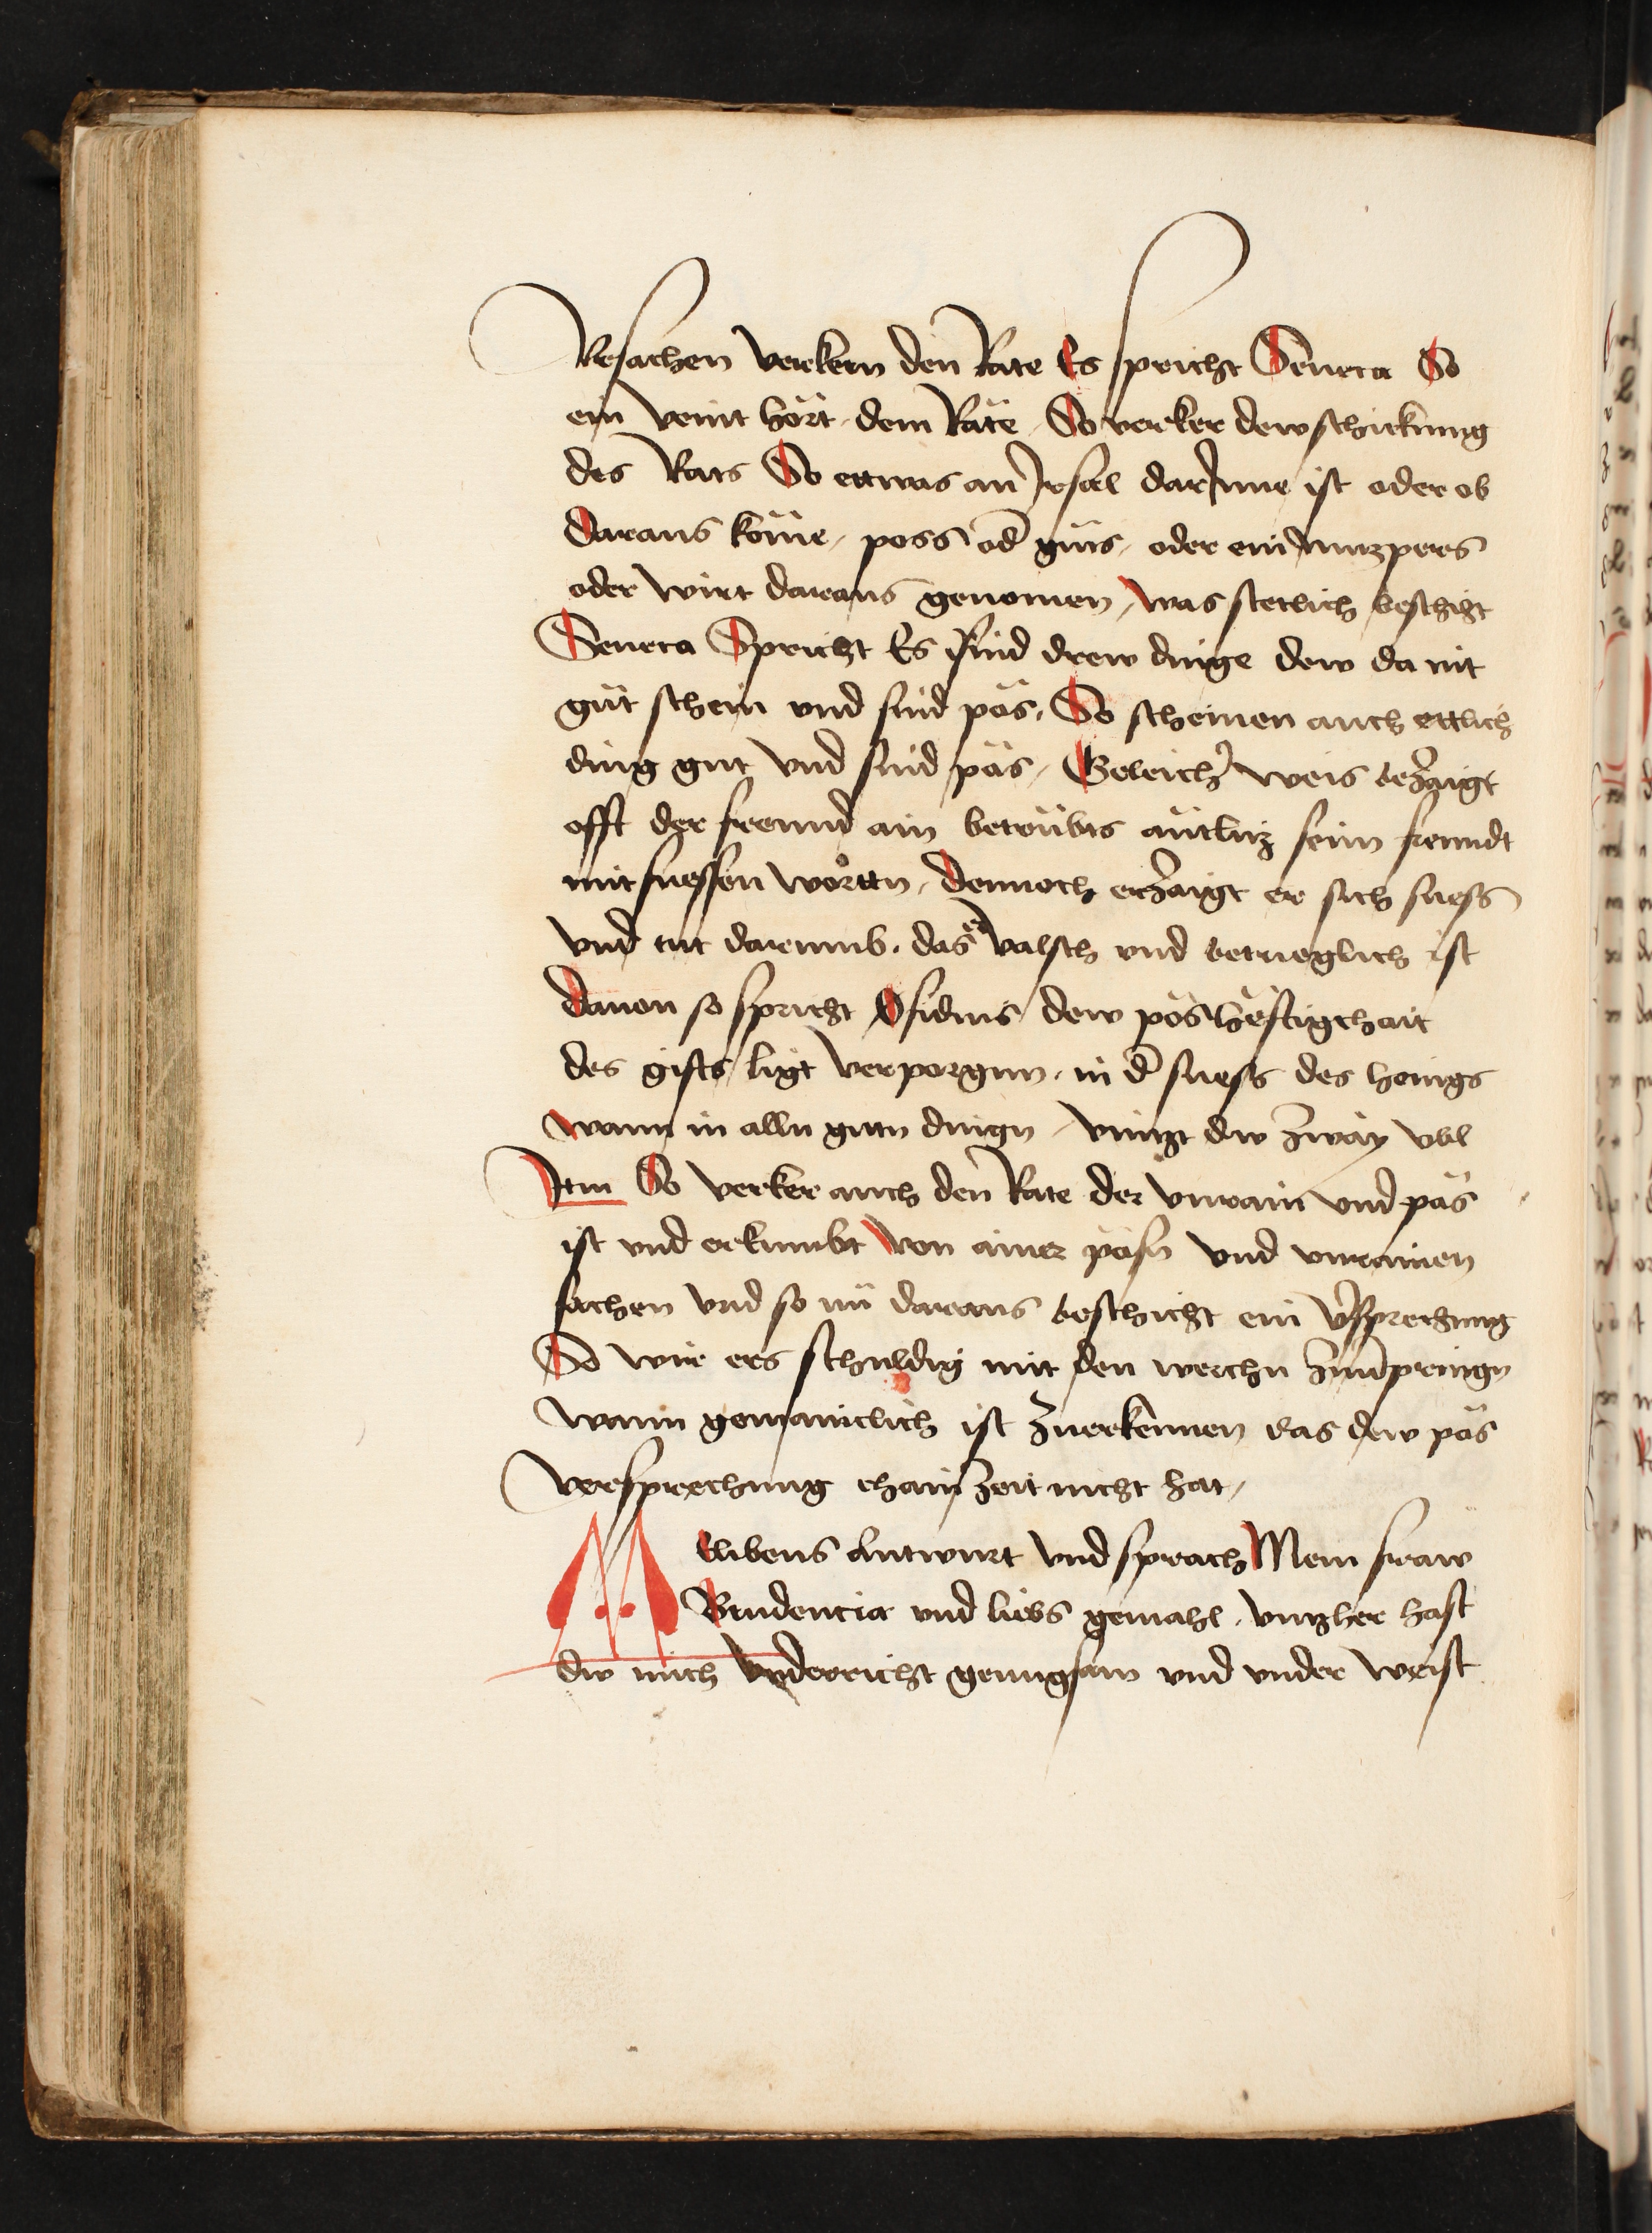 Vrsachen verkern den Rate Es spricht Seneca So
ein veint hört dem Räte So verker dew schickung
des Rats So ettwas an Irsal darInne ist oder ob
daraus köme, poss od güts, oder ein nutzpers
oder wirt daraus genomen, was stetlich beschiht
Seneca Spricht Es sind drew dinge dew da nit
güt schein vnd sind pös, So scheinen auch ettlich
ding gut vnd sind päs, Geleich weis bezaigt
offt der freund ain betrübts äntlütz seim freundt
mit suessen wortten, dennoch erzaigt er sich suess
vnd tut darumb, das er valsch vnd betrieglich ist
dauon so spricht Ofidius dew pös heftigchait
des gifts ligt verporgen, in d suess des honigs
wann in alln gutn dingn, vintzt dw zway vbl
Itm So verker auch den Rate der vnrain vnd päs
ist vnd erkumbt von ainer päsn vnd vnrainen
sachen vnd so nü daraus beschicht ein vsprechung
So wir ers schuldig mit den werchn zuuolpringn
wann gemainclich ist zuerkennen das dew päs
versprechung chain zeit nicht hat,
M Elibeus Antwurt vnd sprach Mein fraw
Brudencia vnd liebs gemahl, vntzher hast
dw mich vnderricht genugsam vnd vnder weist